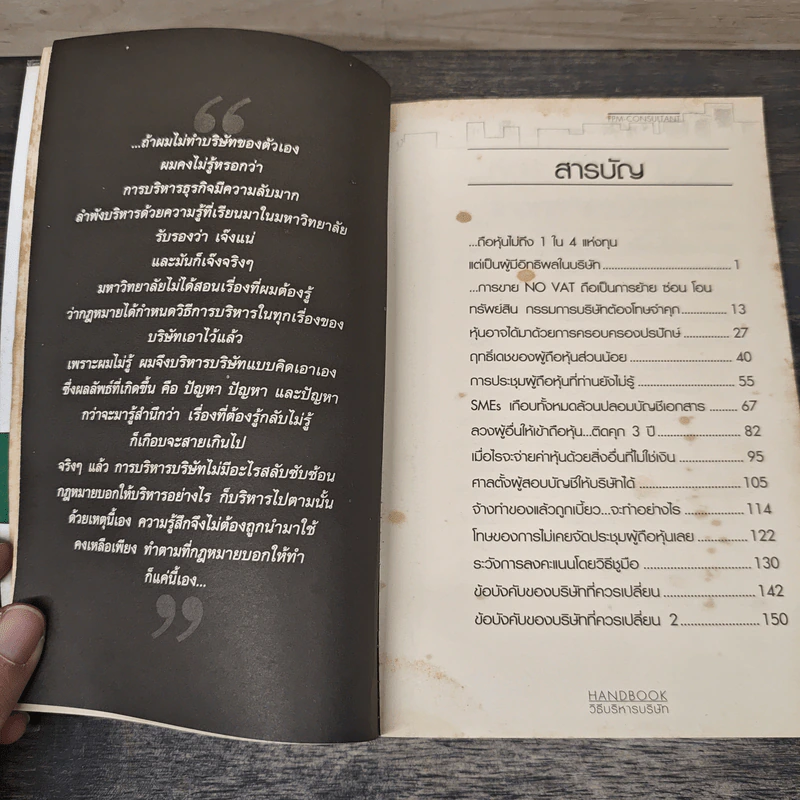 “
...ถ้าผมไม่ทำบริษัทของตัวเอง
ผมคงไม่รู้หรอกว่า
การบริหารธุรกิจมีความลับมาก
ลำพังบริหารด้วยความรู้ที่เรียนมาในมหาวิทยาลัย
รับรองว่า เจ๊งแน่
และมันก็เจ๊งจริงๆ
มหาวิทยาลัยไม่ได้สอนเรื่องที่ผมต้องรู้
ว่ากฎหมายได้กำหนดวิธีการบริหารในทุกเรื่องของ
บริษัทเอาไว้แล้ว
เพราะผมไม่รู้ ผมจึงบริหารบริษัทแบบคิดเอาเอง
ซึ่งผลลัพธ์ที่เกิดขึ้น คือ ปัญหา ปัญหา และปัญหา
กว่าจะมารู้สำนึกว่า เรื่องที่ต้องรู้กลับไม่รู้
ก็เกือบจะสายเกินไป
จริงๆ แล้ว การบริหารบริษัทไม่มีอะไรสลับซับซ้อน
กฎหมายบอกให้บริหารอย่างไร ก็บริหารไปตามนั้น
ด้วยเหตุนี้เอง ความรู้สึกจึงไม่ต้องถูกนำมาใช้
คงเหลือเพียง ทำตามที่กฎหมายบอกให้ทำ
ก็แค่นี้เอง...
”
CONSULTANT
สารบัญ
...ถือหุ้นไม่ถึง 1 ใน 4 แห่งทุน
แต่เป็นผู้มีอิทธิพลในบริษัท 1
...การขาย NO VAT ถือเป็นการย้าย ซ่อน โอน
ทรัพย์สิน กรรมการบริษัทต้องโทษจำคุก 13
หุ้นอาจได้มาด้วยการครอบครองปรปักษ์ 27
ฤทธิ์เดชของผู้ถือหุ้นส่วนน้อย 40
การประชุมผู้ถือหุ้นที่ท่านยังไม่รู้ 55
SMEs เกือบทั้งหมดล้วนปลอมบัญชีเอกสาร 67
ลวงผู้อื่นให้เข้าถือหุ้น...ติดคุก 3 ปี 82
เมื่อไรจะจ่ายค่าหุ้นด้วยสิ่งอื่นที่ไม่ใช่เงิน 95
ศาลตั้งผู้สอบบัญชีให้บริษัทได้ 105
จ้างทำของแล้วถูกเบี้ยว...จะทำอย่างไร 114
โทษของการไม่เคยจัดประชุมผู้ถือหุ้นเลย 122
ระวังการลงคะแนนโดยวิธีชูมือ 130
ข้อบังคับของบริษัทที่ควรเปลี่ยน 142
ข้อบังคับของบริษัทที่ควรเปลี่ยน 2 150
HANDBOOK
วิธีบริหารบริษัท